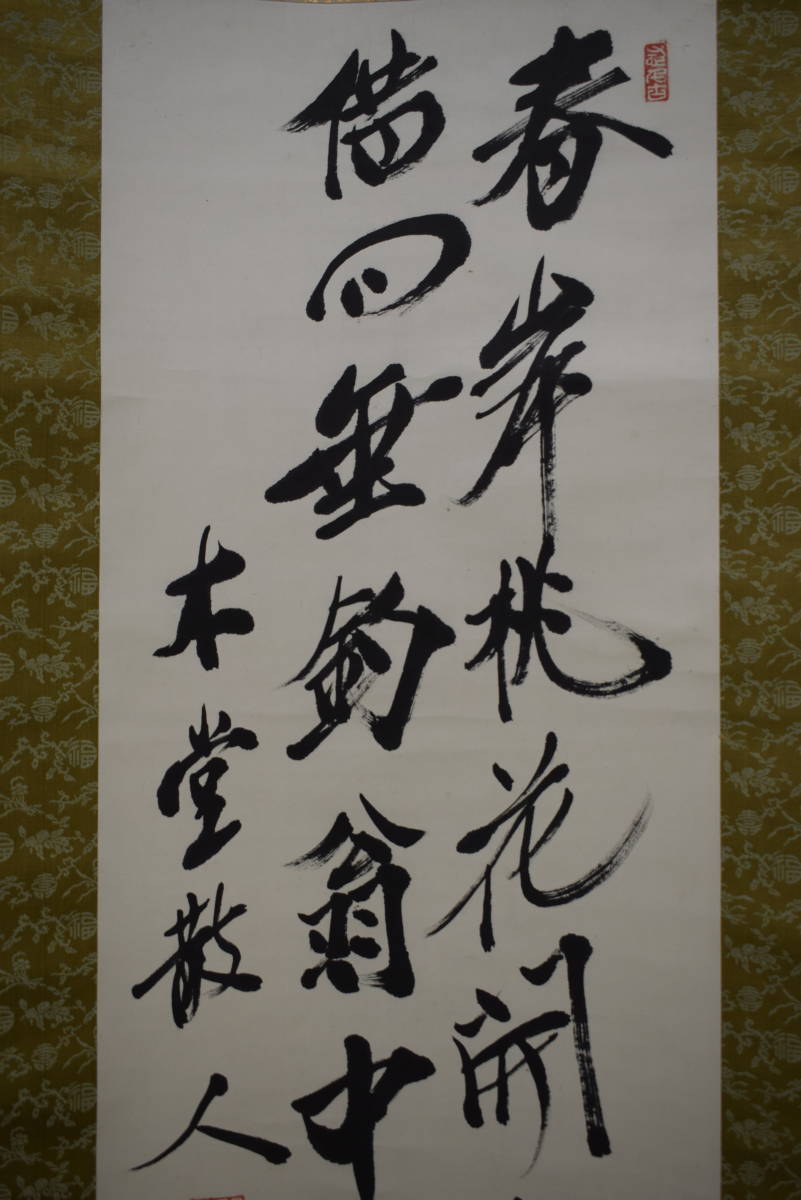 春岸桃花開
借問垂釣翁中
木堂散人